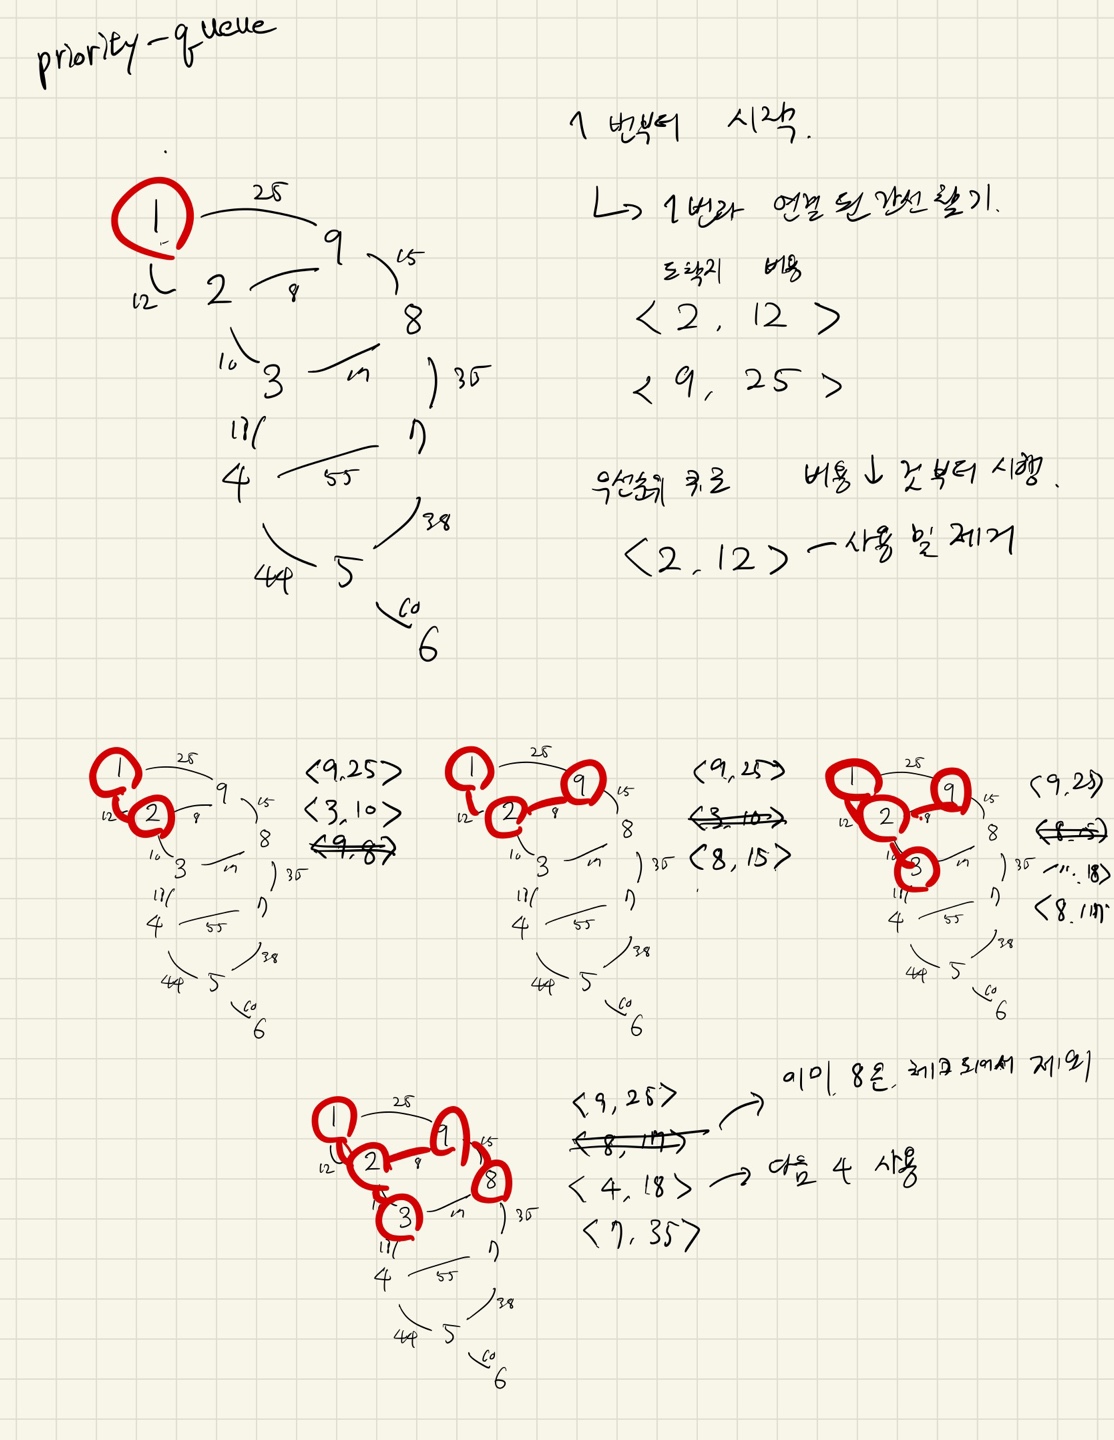 priority-queue
1번부터 시작.
↳ 1번과 연결된 간선 찾기.
도착지 비용
<2, 12>
<9, 25>
우선순위 큐로 비용↓ 것부터 시행.
<2, 12> - 사용 및 제거
1
25
9
12
2
8
15
8
10
3
17
35
7
4
55
38
44
5
60
6
1
25
9
12
2
8
15
8
10
3
35
7
4
55
38
44
5
60
6
<9,25>
<3,10>
<9,8>
1
25
9
12
2
8
15
8
10
3
35
7
4
55
38
44
5
60
6
<9,25>
<3,10>
<8,15>
1
25
9
12
2
8
15
8
3
17
35
7
4
55
38
44
5
60
6
<9,25>
<8,15>
<8,17>
1
25
9
12
2
8
15
8
3
17
35
7
4
55
38
44
5
60
6
<9,25>
<8,17> → 이미 8은 체크되어서 제외
<4,18> → 다음 4 사용
<7,35>